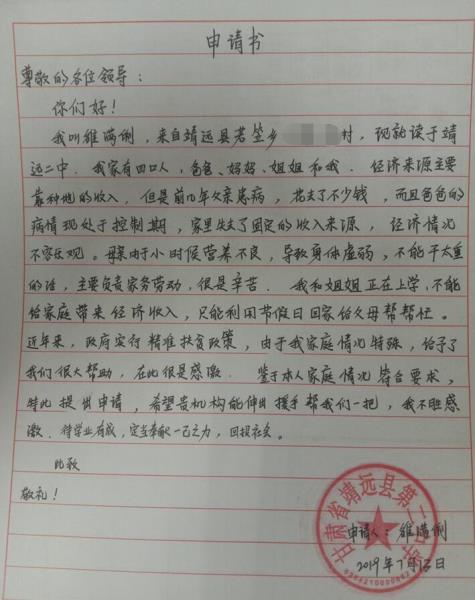 申请书
尊敬的各位领导：
你们好！
我叫雒满俐，来自靖远县若笠乡村，现就读于靖
远二中。我家有四口人，爸爸、妈妈、姐姐和我。经济来源主要
靠种地的收入，但是前几年父亲患病，花去了不少钱，而且爸爸的
病情现处于控制期，家里失去了固定的收入来源，经济情况
不容乐观。母亲由于小时候营养不良，导致身体虚弱，不能干太重
的活，主要负责家务劳动，很是辛苦。我和姐姐正在上学，不能
给家庭带来经济收入，只能利用节假日回家给父母帮帮忙。
近年来，政府实行精准扶贫政策，由于我家庭情况特殊，给予了
我们很大帮助，在此很是感激。鉴于本人家庭情况符合要求，
特此提出申请，希望贵机构能伸出援手帮我们一把，我不胜感
激。待学业有成，定当奉献一己之力，回报社会。
此致
敬礼！
甘肃省靖远县第二中
申请人：雒满俐
2019年7月日